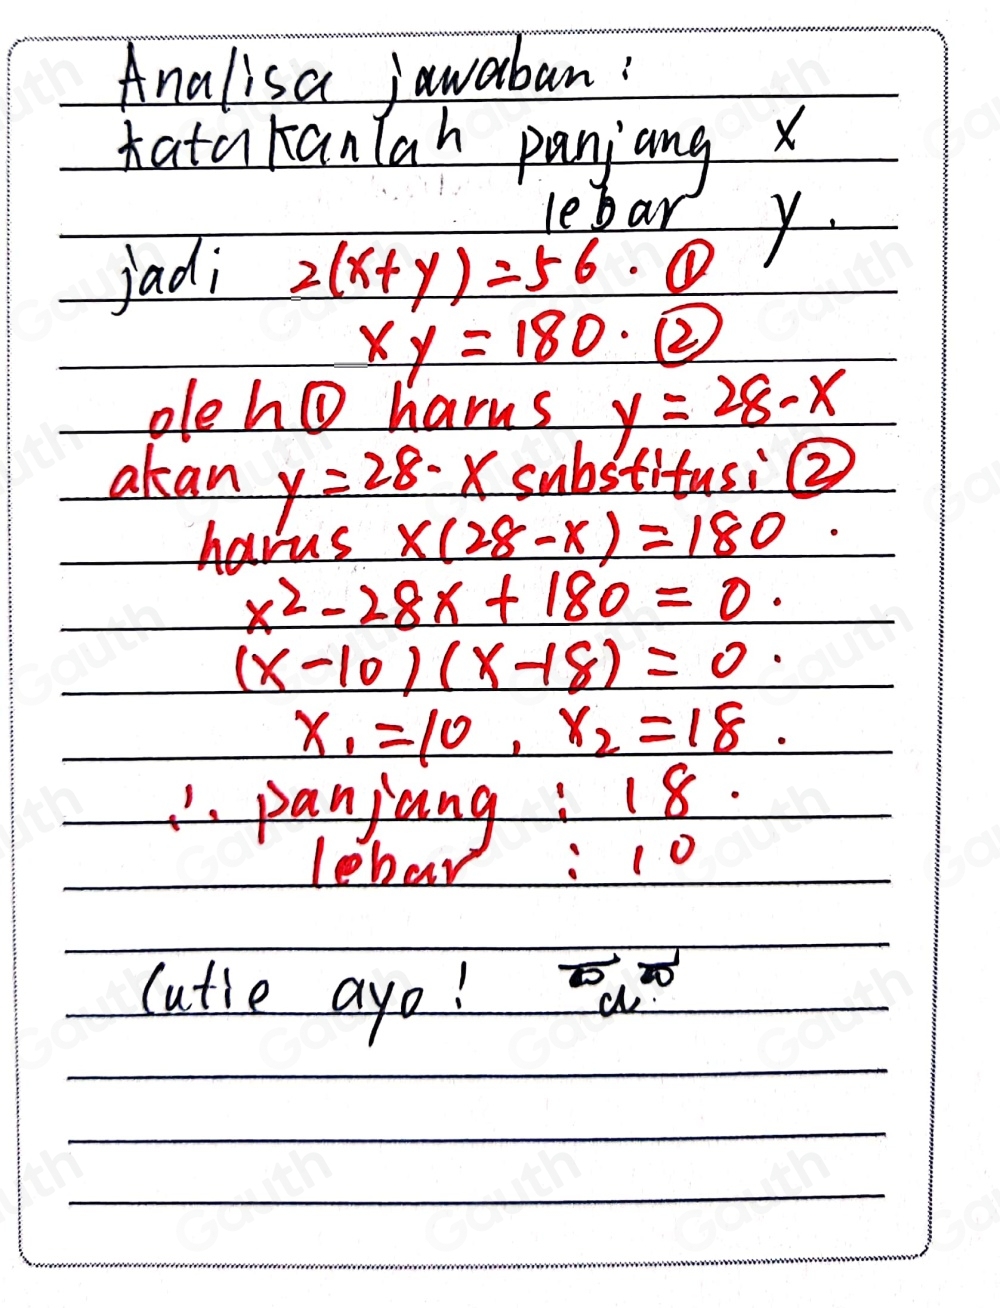 Analisa jawaban :
katakanlah panjang x
lebar y.
jadi 2(x+y)=56. ①
xy=180. ②
oleh ① harus y=28-x
akan y=28-x substitusi ②
harus x(28-x)=180.
x²-28x+180=0.
(x-10)(x-18)=0.
x₁=10, x₂=18.
∴ panjang : 18.
lebar : 10
Cutie ayo!